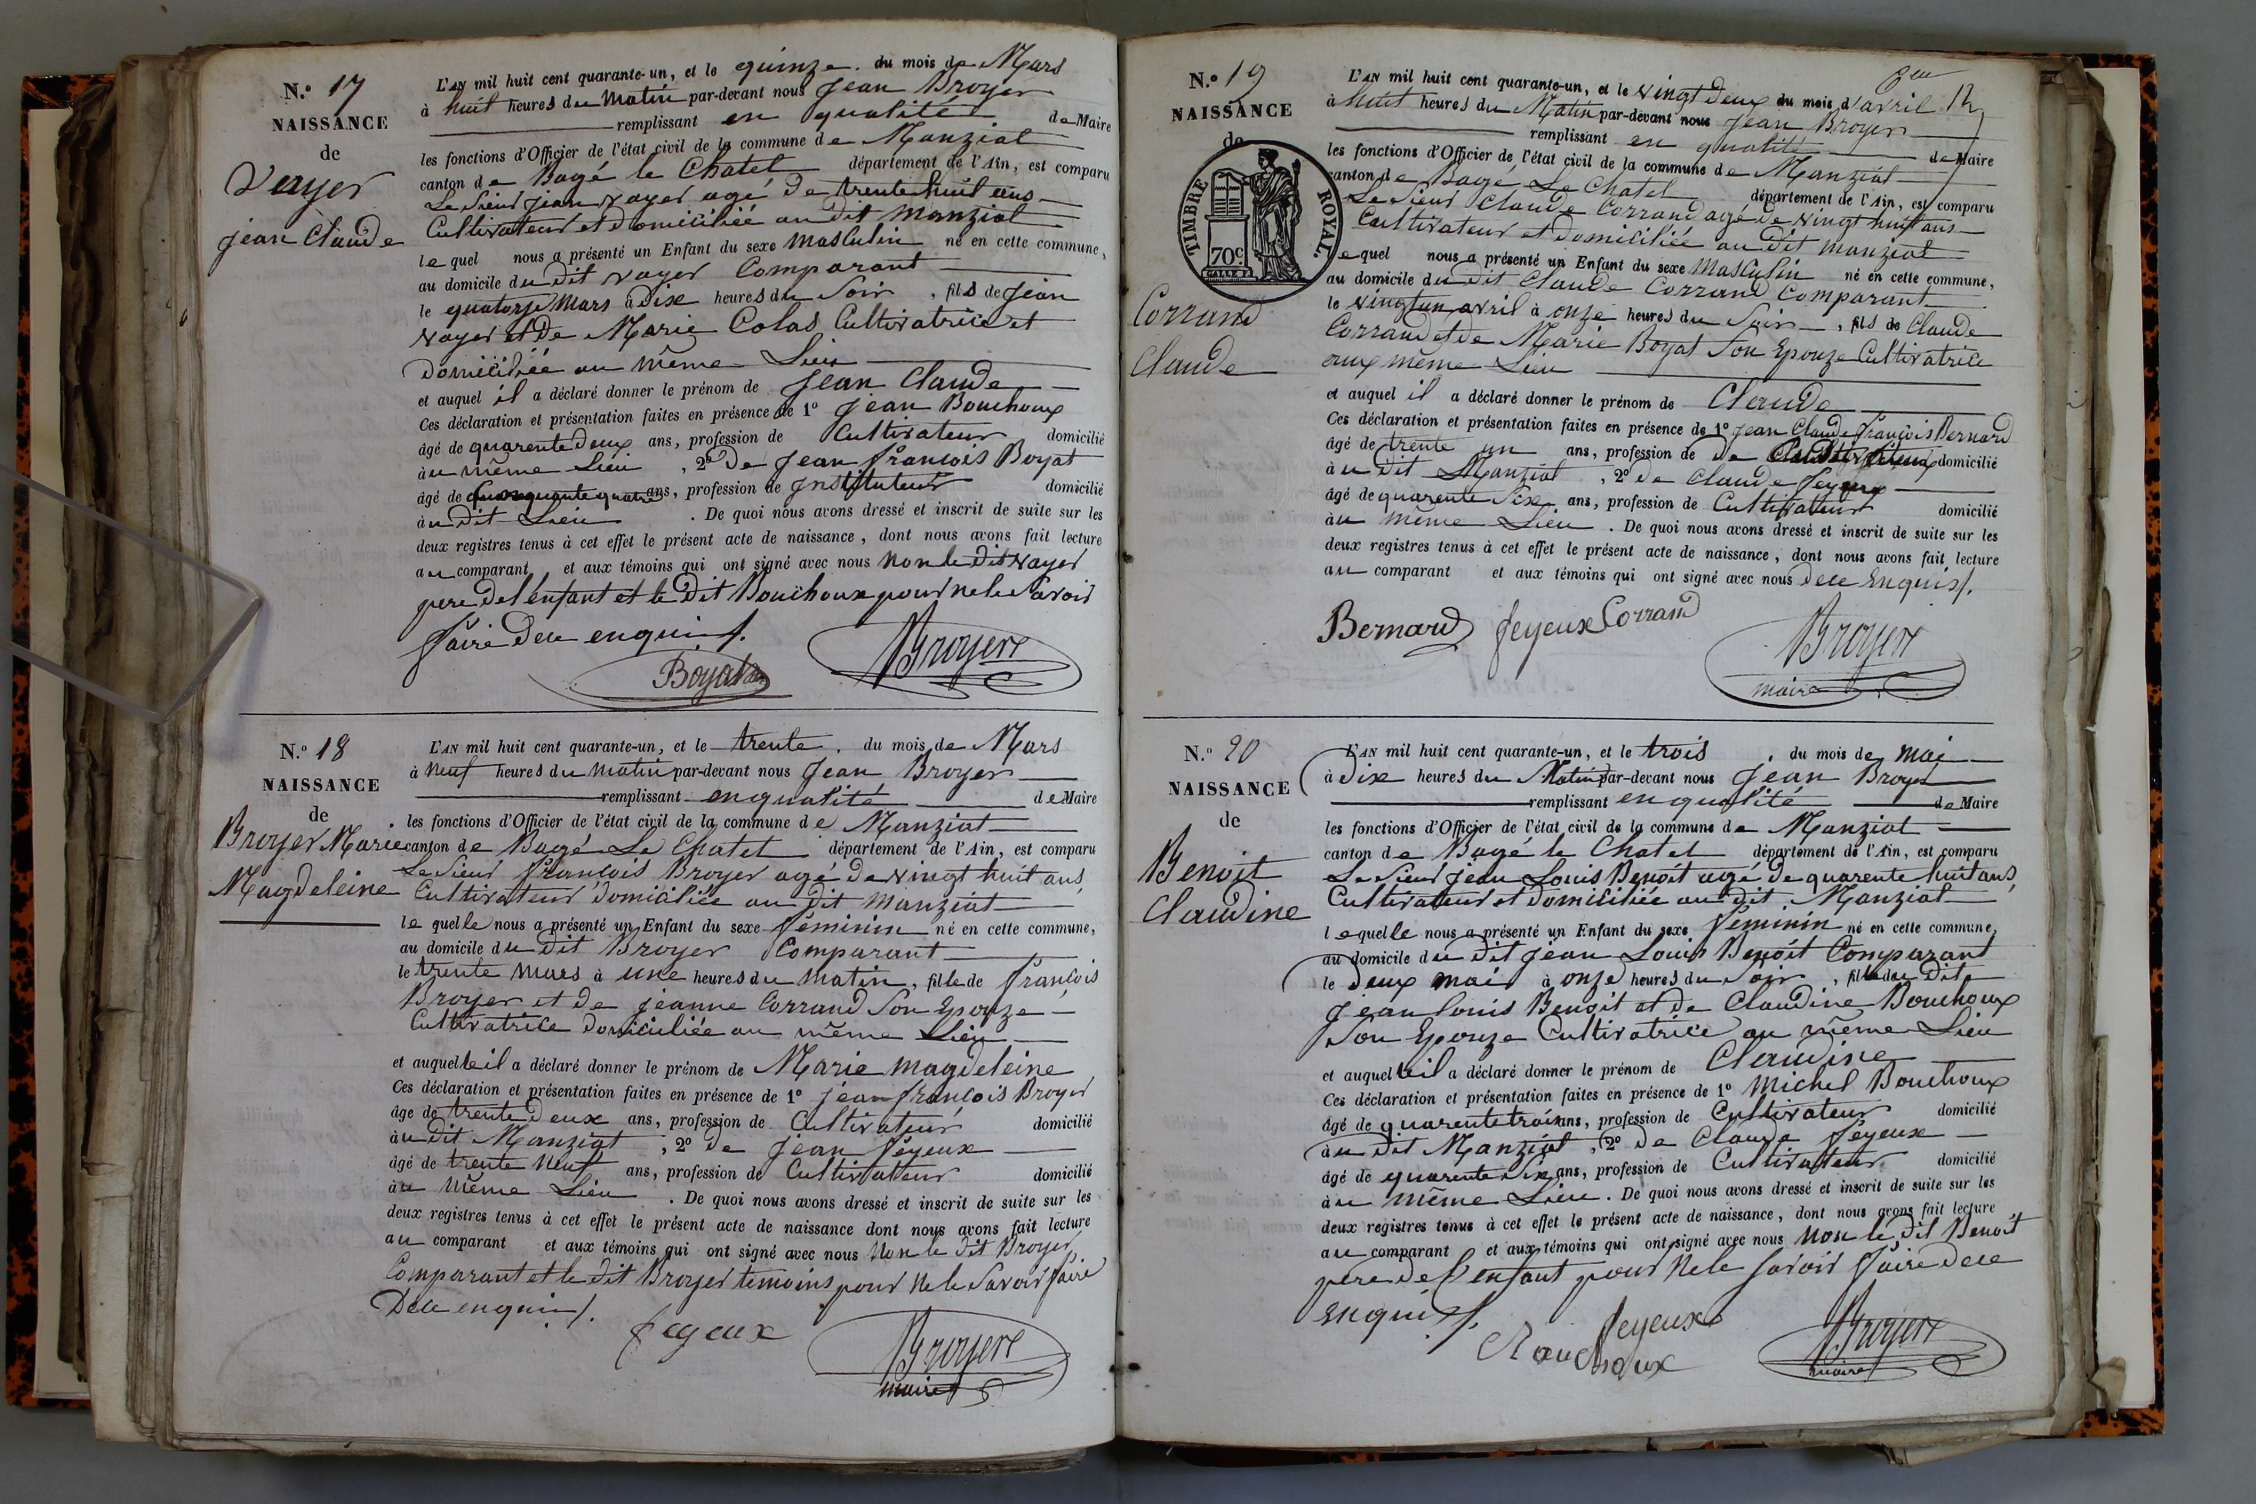 N.° 17
NAISSANCE
de
Vayer
jean Claude
L'AN mil huit cent quarante-un, et le quinze. du mois de Mars
à huit heures du Matin par-devant nous Jean Broyer
remplissant en qualité de Maire
les fonctions d'Officier de l'état civil de la commune de Manziat
canton de Bagé le Chatel département de l'Ain, est comparu
Le Sieur jean vayer agé de trente huit ans
Cultivateur et domiciliée au dit manziat
le quel nous a présenté un Enfant du sexe Masculin né en cette commune,
au domicile du dit vayer Comparant
le quatorze Mars à Dix heures du Soir, fils de Jean
vayer et de Marie Colas Cultivatrice et
domiciliée au même Lieu
et auquel il a déclaré donner le prénom de Jean Claude
Ces déclaration et présentation faites en présence de 1° Jean Bouchoux
âgé de quarente deux ans, profession de Cultivateur domicilié
à u même Lieu, 2° de Jean francois Boyat
âgé de quatre ans, profession de Instituteur domicilié
à u dit Lieu. De quoi nous avons dressé et inscrit de suite sur les
deux registres tenus à cet effet le présent acte de naissance, dont nous avons fait lecture
au comparant et aux témoins qui ont signé avec nous Non le dit vayer
pere de l'enfant et le dit Bouchoux pour ne le savoir
faire de ce enquis /.
Boyat Broyer
N.° 18
NAISSANCE
de
Broyer Marie
Magdeleine
L'AN mil huit cent quarante-un, et le trente. du mois de Mars
à Neuf heures du matin par-devant nous Jean Broyer
remplissant en qualité de Maire
les fonctions d'Officier de l'état civil de la commune de Manziat
canton de Bagé Le Chatel département de l'Ain, est comparu
Le Sieur françois Broyer agé de vingt huit ans
Cultivateur domiciliée au dit Manziat
le quelle nous a présenté un Enfant du sexe féminin né en cette commune,
au domicile du dit Broyer Comparant
le trente mars à une heures du matin, fille de françois
Broyer et de jeanne Corrand Son Epouze
Cultivatrice domiciliée au même Lieu
et auquelle il a déclaré donner le prénom de Marie magdeleine
Ces déclaration et présentation faites en présence de 1° jean françois Broyer
âgé de trente deux ans, profession de Cultivateur domicilié
à u dit Manziat, 2° de jean féyeux
âgé de trente Neuf ans, profession de Cultivateur domicilié
à u même Lieu. De quoi nous avons dressé et inscrit de suite sur les
deux registres tenus à cet effet le présent acte de naissance dont nous avons fait lecture
au comparant et aux témoins qui ont signé avec nous Non le dit Broyer
Comparant et le dit Broyer temoins pour ne le Savoir faire
De ce enquis /.
feyeux Broyer
maire
12
N.° 19
NAISSANCE
de
TIMBRE ROYAL.
70c
Corrand
Claude
L'AN mil huit cent quarante-un, et le vingt deux du mois d'avril
à huit heures du Matin par-devant nous Jean Broyer
remplissant en qualité de Maire
les fonctions d'Officier de l'état civil de la commune de Manziat
canton de Bagé Le Chatel département de l'Ain, est comparu
Le Sieur Claude Corrand agé de vingt huit ans
Cultivateur et domiciliée au dit manziat
le quel nous a présenté un Enfant du sexe Masculin né en cette commune,
au domicile du dit Claude Corrand Comparant
le vingt un avril à onze heures du Soir, fils de Claude
Corrand et de Marie Boyat Son Epouze Cultivatrice
aux même Lieu
et auquel il a déclaré donner le prénom de Claude
Ces déclaration et présentation faites en présence de 1° Jean Claude françois Bernard
âgé de trente un ans, profession de de domicilié
à u dit Manziat, 2° de Claude feyeux
âgé de quarente Six ans, profession de Cultivateur domicilié
à u même Lieu. De quoi nous avons dressé et inscrit de suite sur les
deux registres tenus à cet effet le présent acte de naissance, dont nous avons fait lecture
au comparant et aux témoins qui ont signé avec nous de ce Enquis /.
Bernard feyeux Corrand Broyer
maire
N.° 20
NAISSANCE
de
Benoit
Claudine
L'AN mil huit cent quarante-un, et le trois du mois de mai
à dix heures du Matin par-devant nous Jean Broyer
remplissant en qualité de Maire
les fonctions d'Officier de l'état civil de la commune de Manziat
canton de Bagé le Chatel département de l'Ain, est comparu
Le Sieur jean Louis Benoit agé de quarente huit ans
Cultivateur et domiciliée au dit Manziat
lequelle nous a présenté un Enfant du sexe féminin né en cette commune,
au domicile du dit Jean Louis Benoit Comparant
le deux mai à onze heures du Soir, fille du dit
Jean Louis Benoit et de Claudine Bouchoux
Son Epouze Cultivatrice au même Lieu
et auquelle il a déclaré donner le prénom de Claudine
Ces déclaration et présentation faites en présence de 1° Michel Bouchoux
âgé de quarente trois ans, profession de Cultivateur domicilié
à u dit Manziat, 2° de Claude féyeux
âgé de quarente Six ans, profession de Cultivateur domicilié
à u même Lieu. De quoi nous avons dressé et inscrit de suite sur les
deux registres tenus à cet effet le présent acte de naissance, dont nous avons fait lecture
au comparant et aux témoins qui ont signé avec nous Non le dit Benoit
pere de l'enfant pour ne le savoir faire de ce
enquis /.
feyeux Broyer
Bouchoux maire